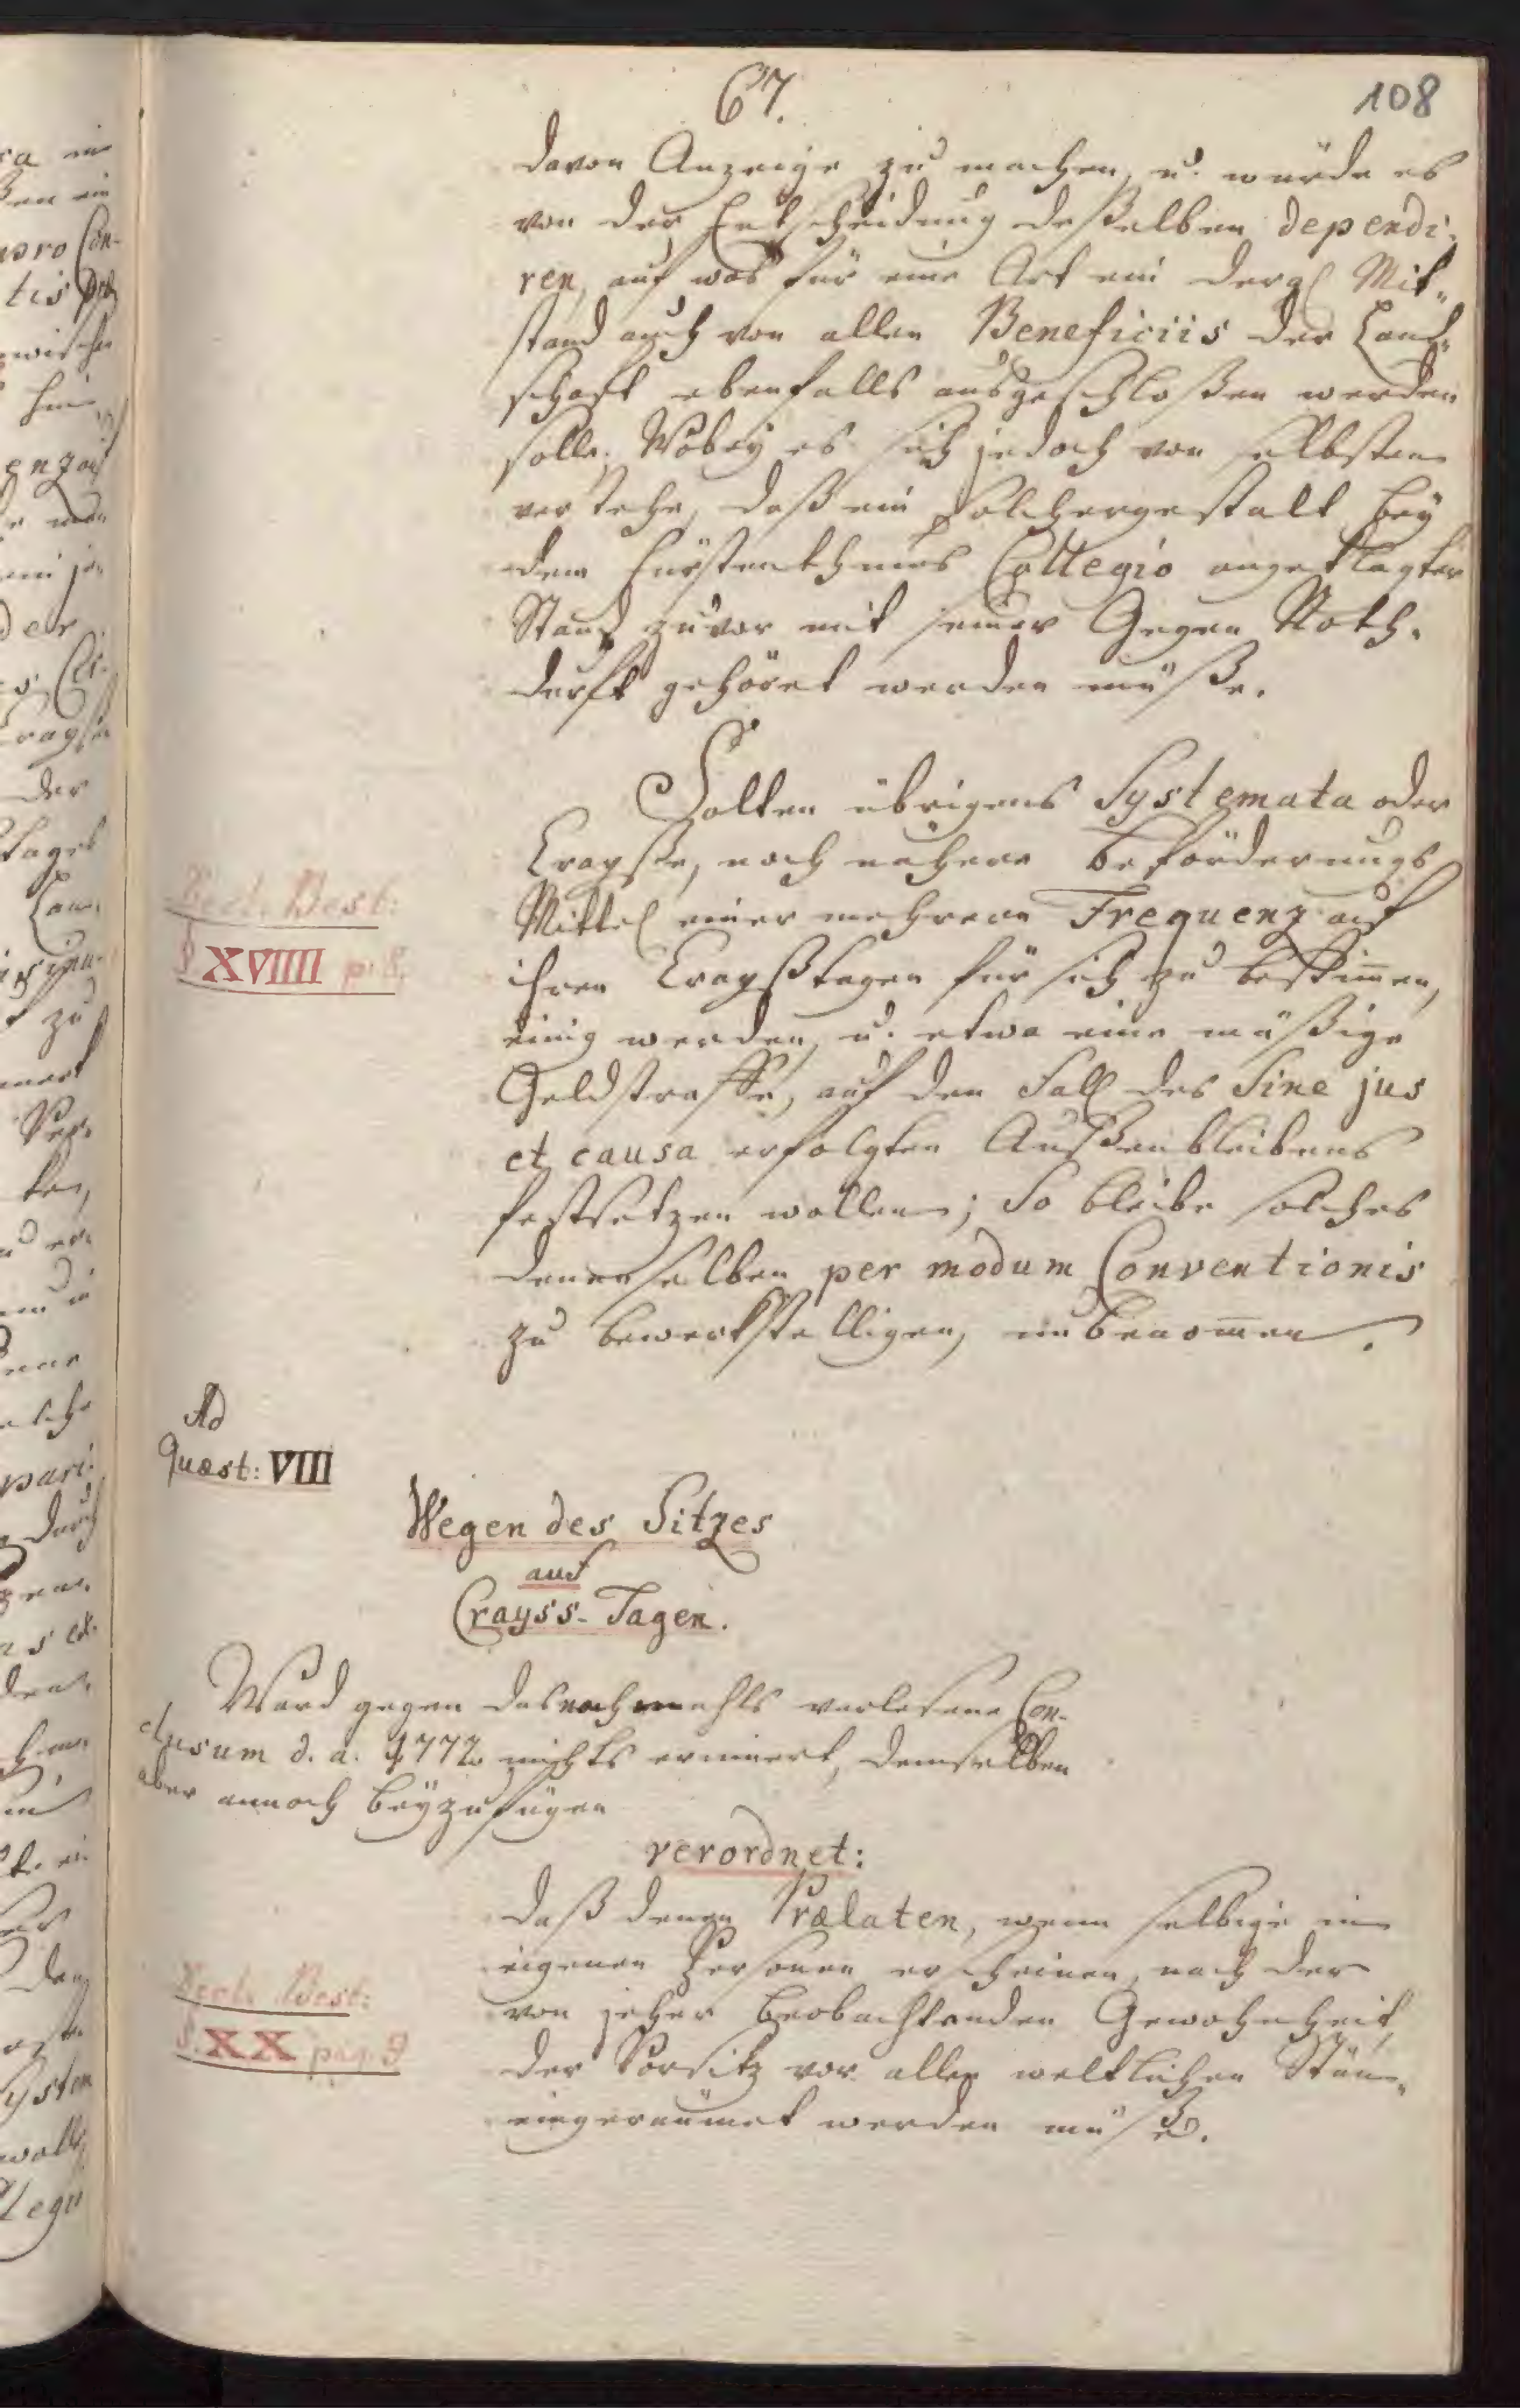 67.
108
davon Anzeige zu machen, u. würde es
von der Entscheidung deßelben dependi-
ren, auf was für eine Art ein dergl Mit„
stand auch von allen Beneficiis der Land„
schaft ebenfalls ausgeschloßen werden
solle. Wobey es sich jedoch von selbsten
verstehe, daß ein solchergestalt bey
dem Fürstenthums Collegio angeklagter
Stand zuvor mit seiner Gegen Noth-
durft gehöret werden müße.
Solten übrigens Systemata oder
Crayße, noch nähere Beförderungs
Mittel einer mehrern Frequenz auf
ihren Crayßtagen für sich zu bestimen,
einig werden, u. etwa eine mäßige
Geldstraffe, auf den Fall des Sine jus
et causa erfolgten Außenbleibens
festsetzen wollen; So bleibe solches
denenselben per modum Conventionis
zu bewerkstelligen, unbenomen.
Best:
§ XVIIII p. 8.
Ad
Quæst: VIII
Wegen des Sitzes
auf
Crayss-Tagen.
Ward gegen das nochmahls verlesene Con-
clusum d. a. 1772 nichts erinnert, demselben
aber annoch beyzufügen
verordnet:
daß denen Prælaten, wenn selbige in
eigenen Personen erscheinen, nach der
von jeher beobachtenden Gewohnheit,
der Vorsitz vor allen weltlichen Stän„
eingeräumet werden müße.
Best:
§. XX pag. 9